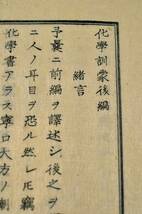 化學訓蒙後編
緒言
予曩ニ前編ヲ譯述シ後之ヲ
ニ人ノ耳目ヲ恐ル然レ𪜈竊
化學書アラス寧ロ大方ノ刺